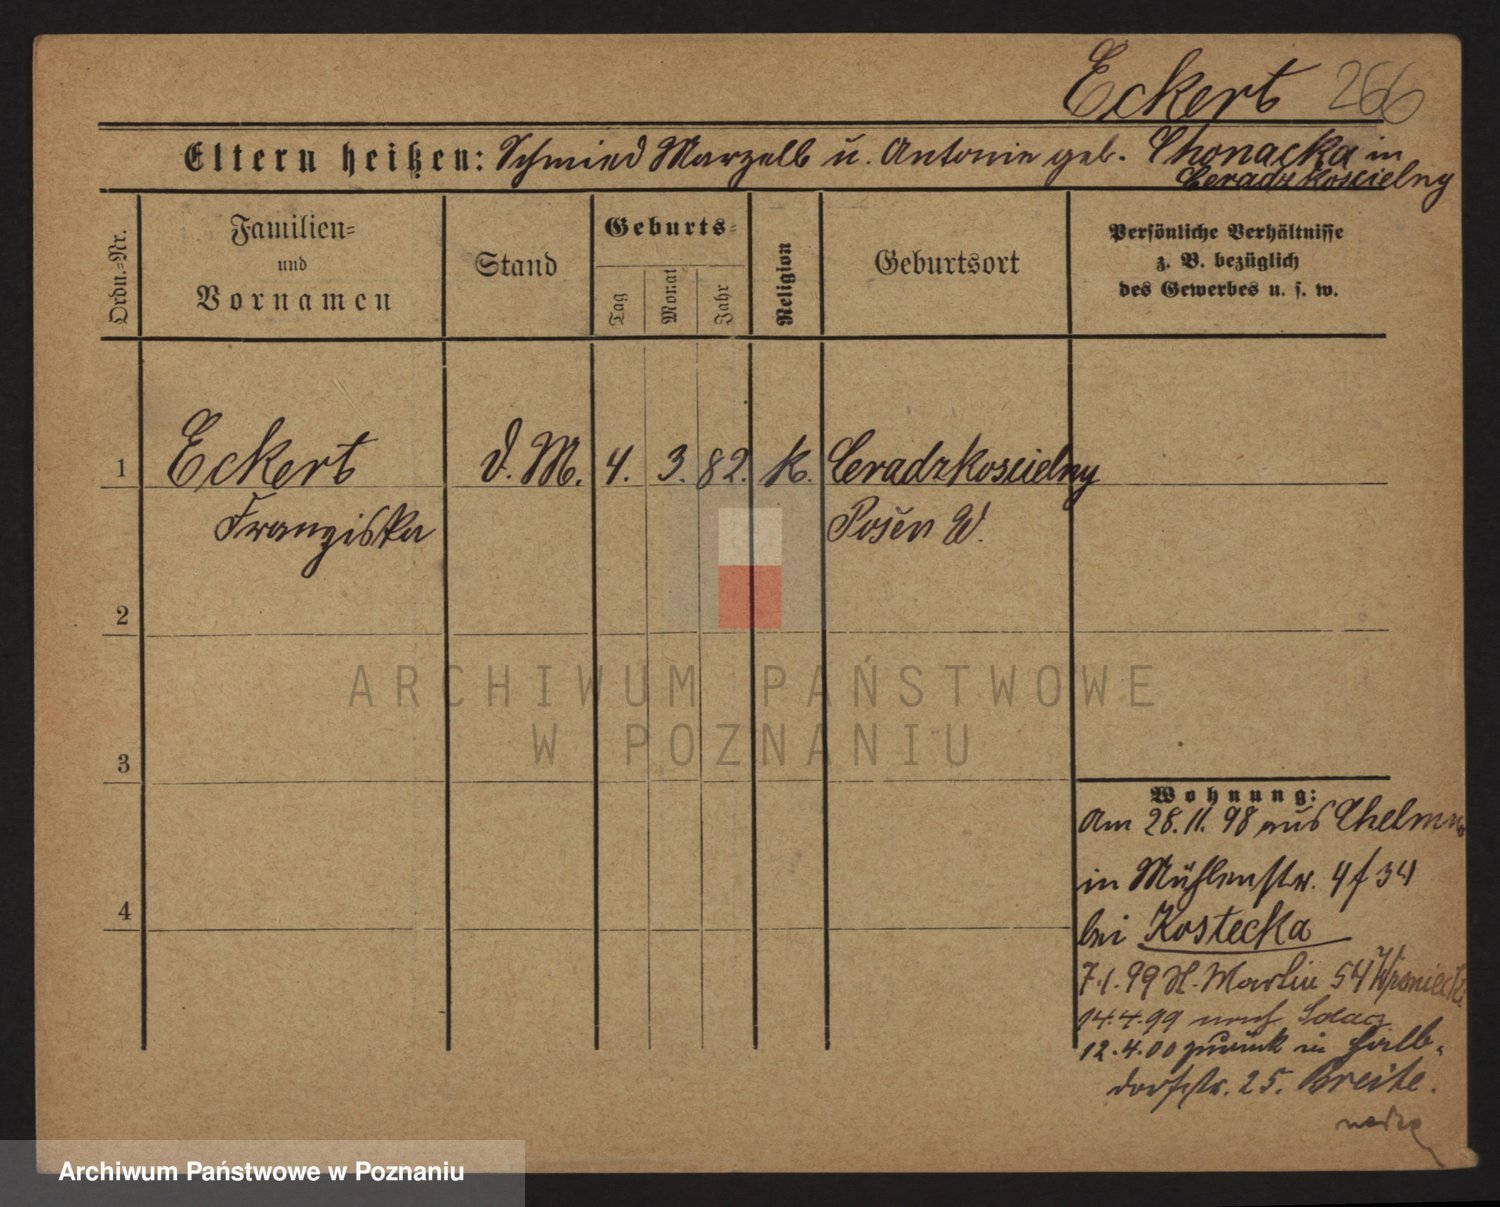 Eckert 266
Eltern heißen: Schmied Marzell u. Antonie geb. Chonacka in
Ceradzkoscielny
Ordn.=Nr.
Familien=
und
Vornamen
Stand
Geburts=
Tag
Monat
Jahr
Religion
Geburtsort
Persönliche Verhältnisse
z. B. bezüglich
des Gewerbes u. s. w.
1 Eckert d. M. 4. 3. 82. k. Ceradzkoscielny
Franziska Posen W.
2
3
4
Wohnung:
Am 28.11.98 aus Chelmno
in Mühlenstr. 4 f 34
bei Kostecka
7.1.99 St. Martin 54
14.4.99 nach Solacz
12.4.00 zurück in Halb-
dorfstr. 25. Breite.
ARCHIWUM PAŃSTWOWE
W POZNANIU
Archiwum Państwowe w Poznaniu